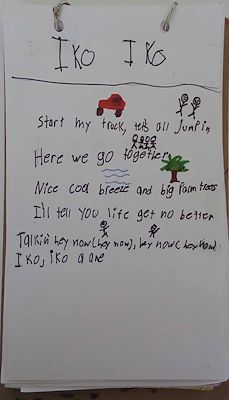 IKO IKO
Start my truck, let's all jump in
Here we go together
Nice cool breeze and big palm trees
I'll tell you life get no better
Talkin' hey now (hey now), hey now (hey now)
IKO, IKO a one